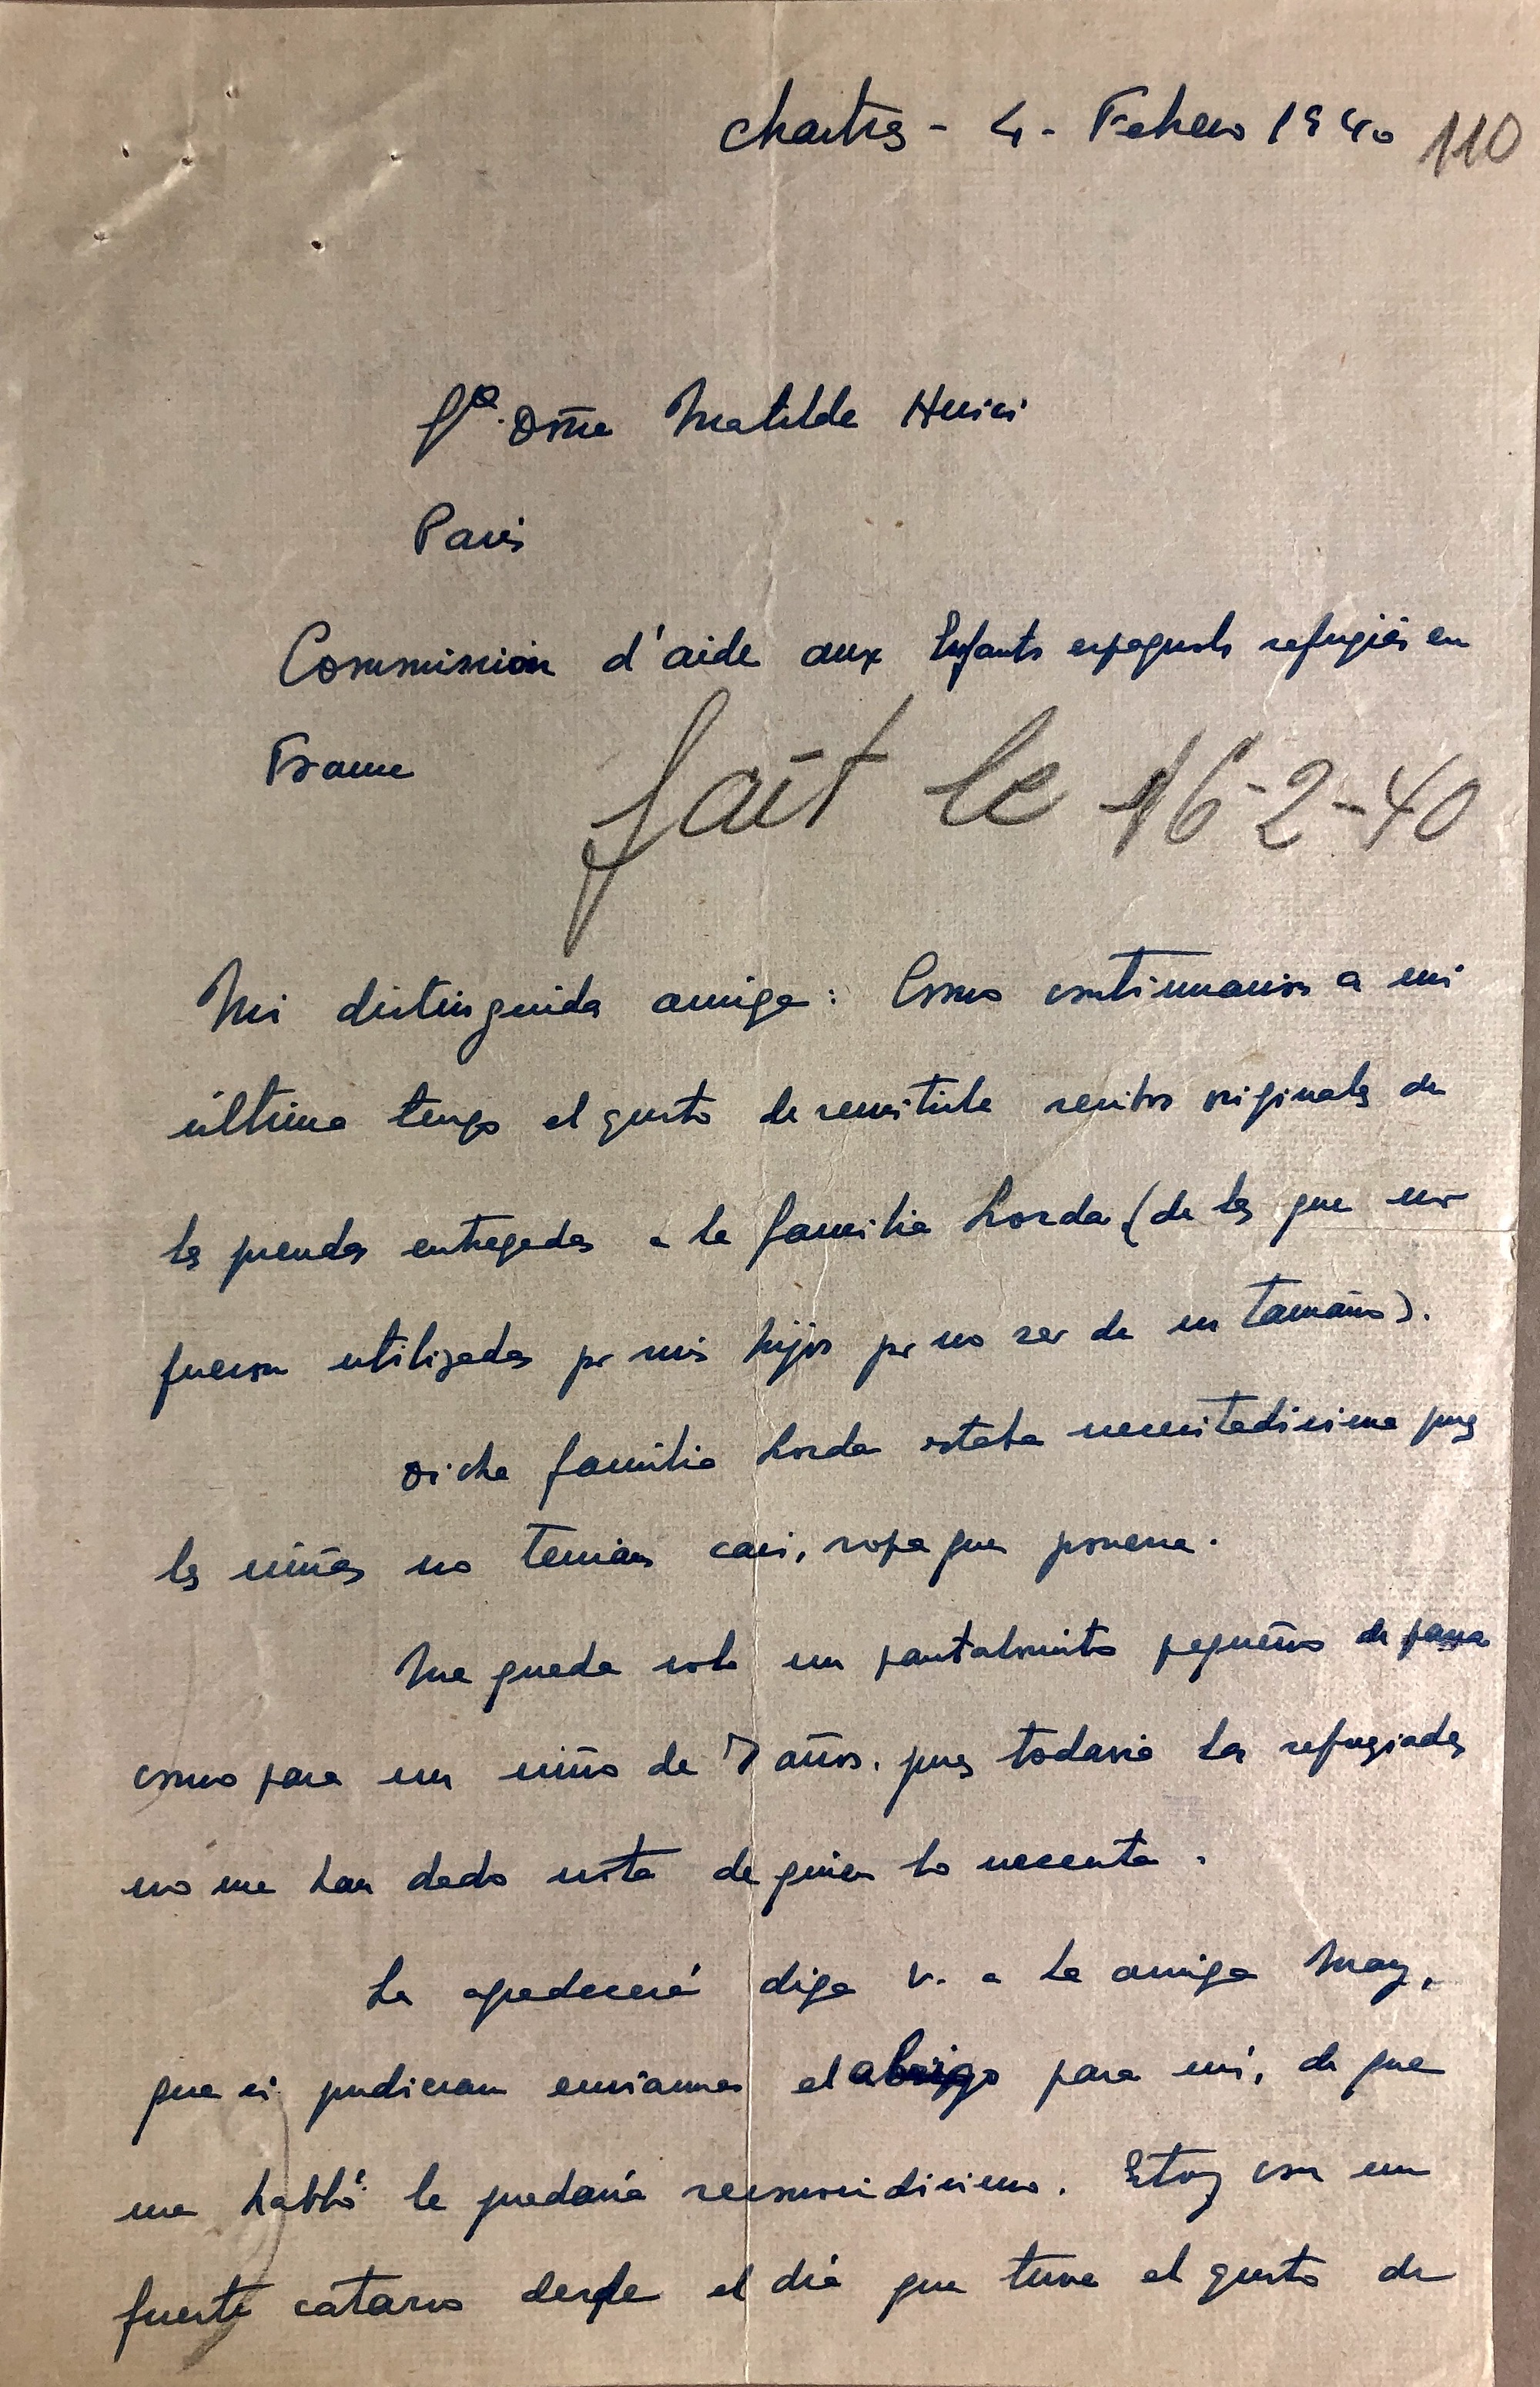 Chartres - 4 - Febrero 1940 110
Sª. Doña Matilde Huici
Paris
Commission d'aide aux Enfants espagnols refugiés en
France
fait le 16-2-40
Mi distinguida amiga: Como continuacion a mi
última tengo el gusto de remitirle recibos originales de
las prendas entregadas a la familia Lorda (de las que no
fueron utilizadas por mis hijos por no ser de su tamaño).
Dicha familia Lorda estaba necesitadisima pues
las niñas no tenian casi, ropa que ponerse.
Me queda solo un pantaloncito pequeño de pana
como para un niño de 7 años. pues todavia las refugiadas
no me han dado nota de quien lo necesita.
Le agradeceré diga V. a la amiga May,
que si pudieran enviarme el abrigo para mí, de que
me habló le quedaria reconocidisimo. Estoy con un
fuerte catarro desde el dia que tuve el gusto de